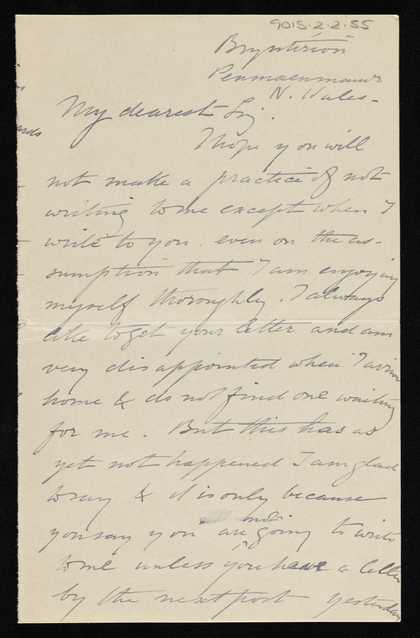 9015-2-2-55
Brynteirion
Penmaenmawr
N. Wales-
My dearest
I hope you will
not make a practice of not
writing to me except when I
write to you. even on the as-
sumption that I am enjoying
myself thoroughly. I always
like to get your letter and am
very disappointed when I arrive
home & do not find one waiting
for me. But this has as
yet not happened I am glad
to say & it is only because
not
you say you are going to write
to me unless you have a letter
by the next post yesterday